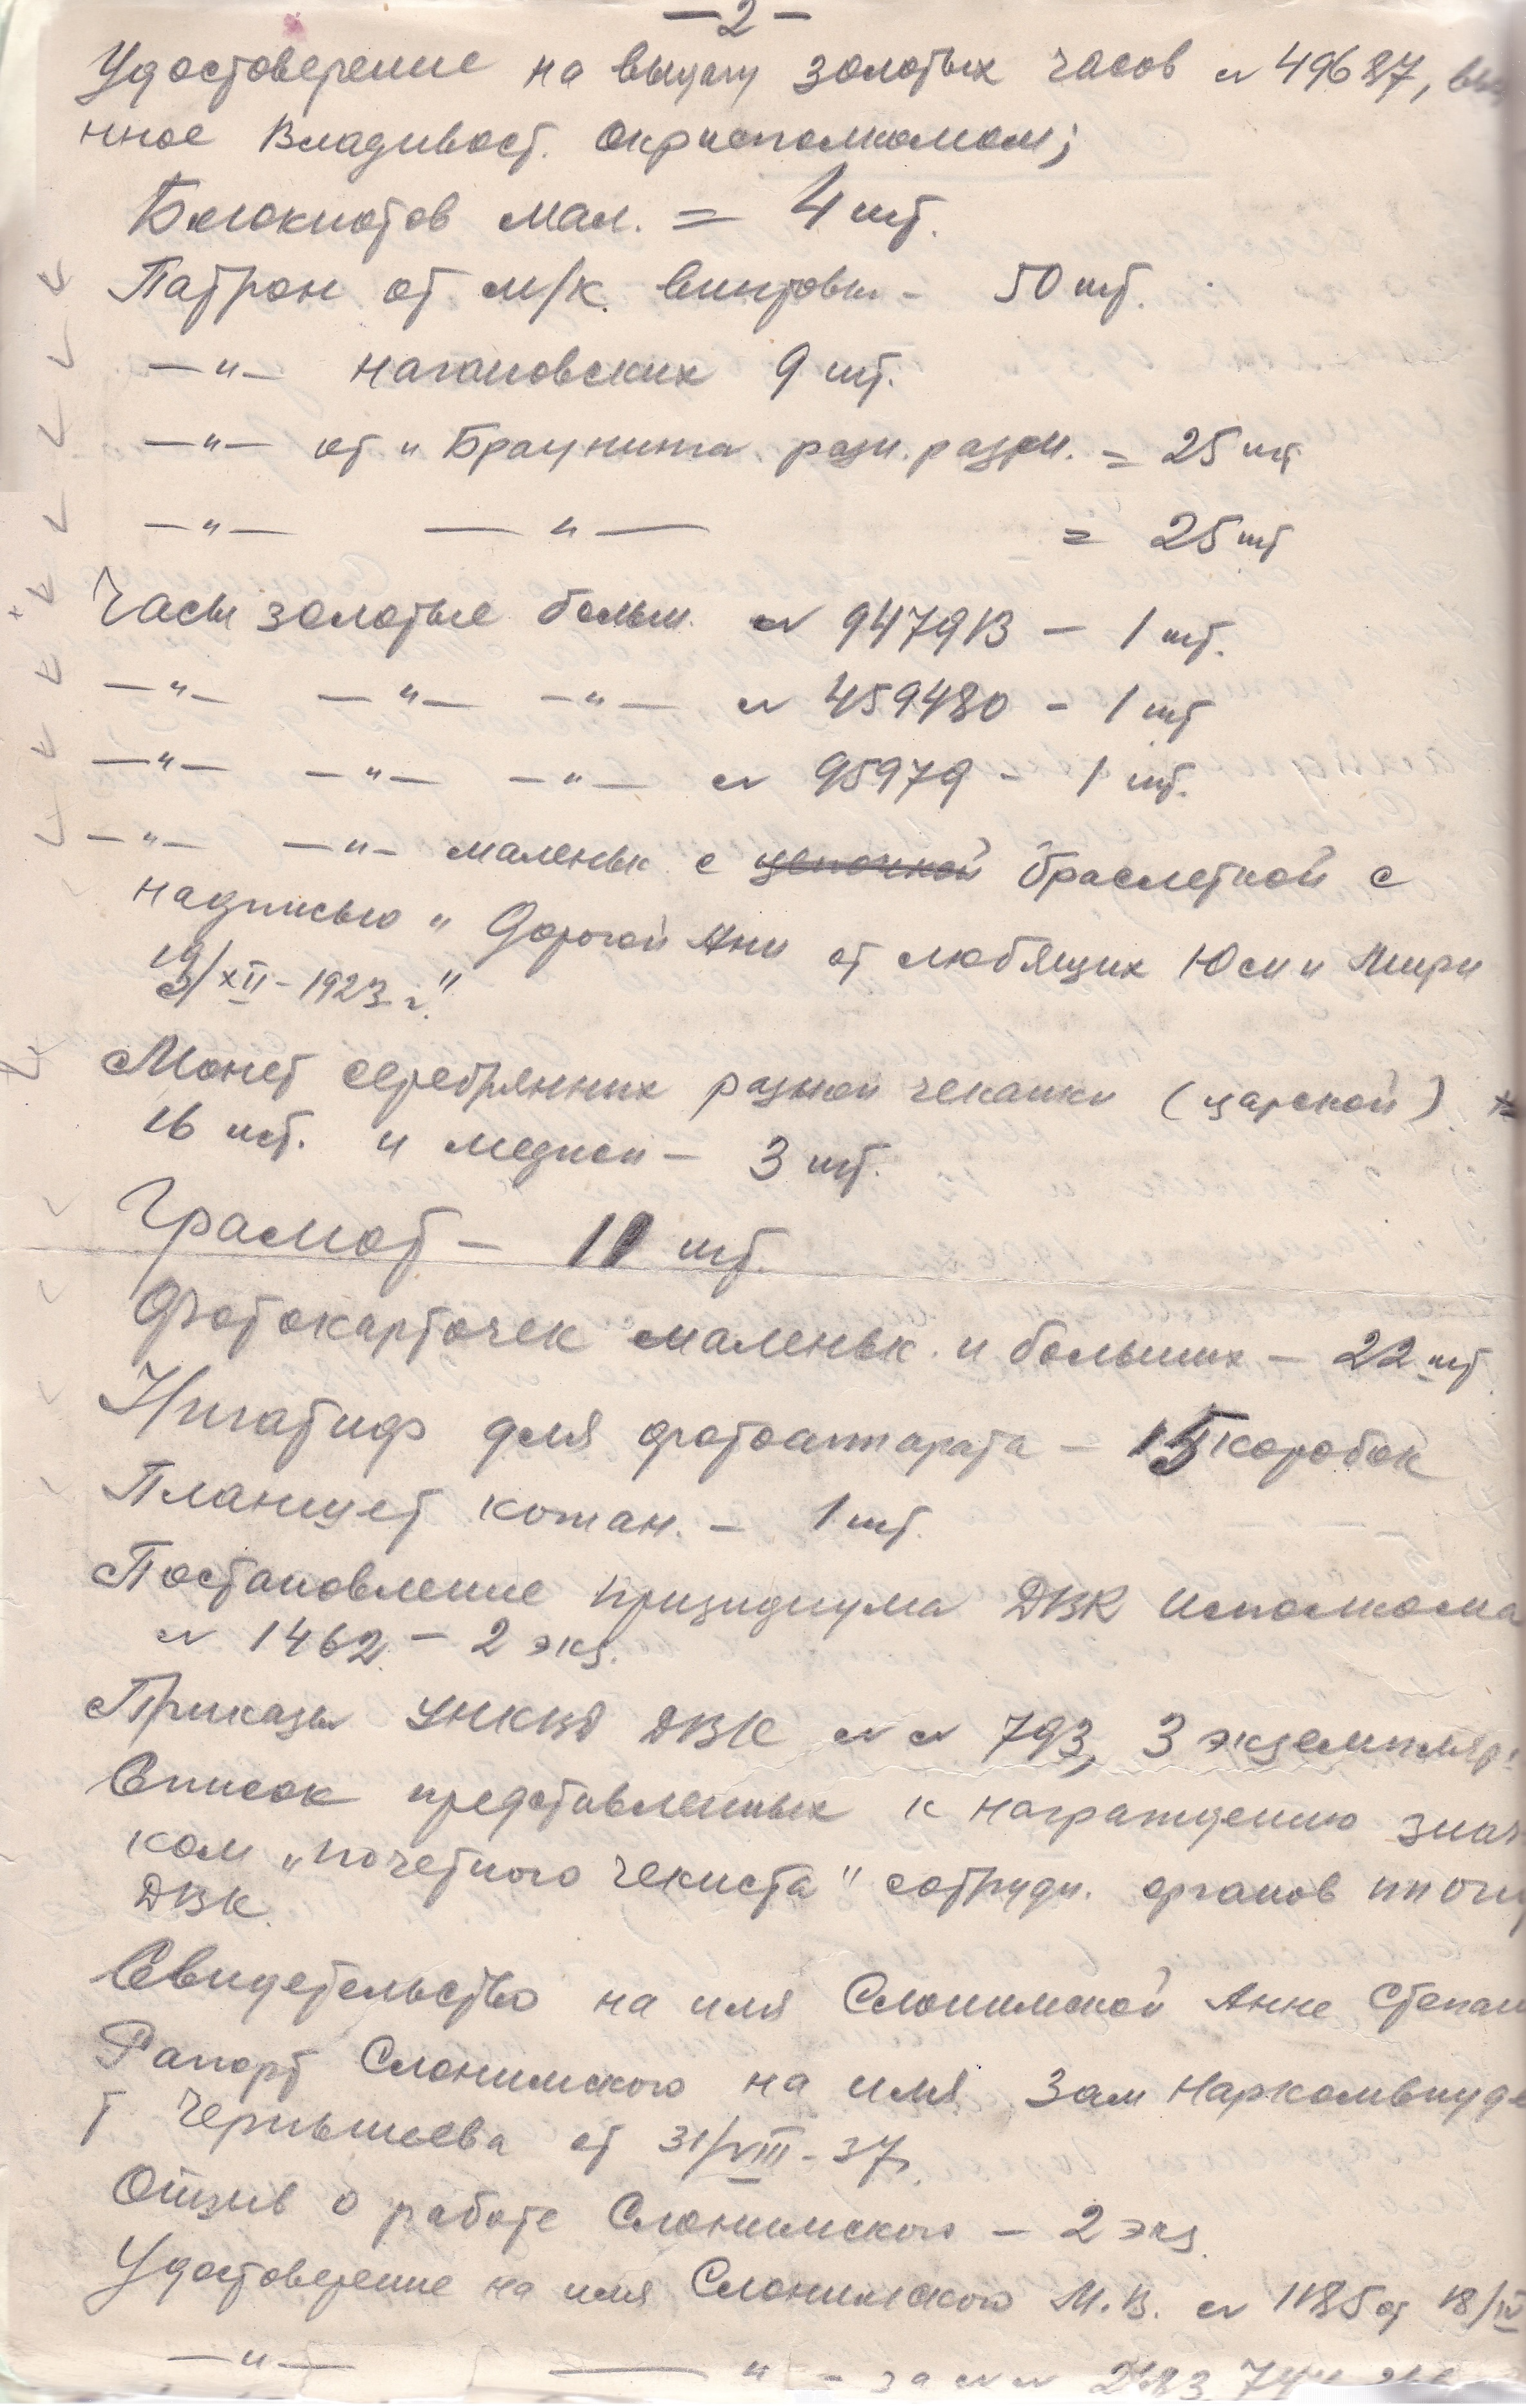 — 2 —
Удостоверение на выдачу золотых часов № 49687,
нное Владивост. окрисполкомом;
Блокнотов мал. = 4 шт.
Патрон от м/к. винтовки - 50 шт.
—"— нагановских 9 шт.
—"— от "Браунинга разн. разм. = 25 шт
—"— —"— = 25 шт
Часы золотые больш. № 947913 — 1 шт.
—"— —"— —"— № 459480 - 1 шт
—"— —"— —"— № 95979 - 1 шт.
—"— —"— маленьк с цепочкой браслеткой с
надписью "Дорогой Ани от любящих Юси и Мири
/XII - 1923 г."
Монет серебрянних разной чеканки (царской)
16 шт. и медной — 3 шт.
Грамот — 11 шт.
Фотокарточек маленьк. и больших — 22 шт.
Нигатиф для фотоаппарата — 15 коробок
Планшет кожан. — 1 шт.
Постановление призидиума ДВК исполкома
№ 1462 — 2 экз.
Приказы УНКВД ДВК №№ 793, 3 экземпляр.
Список представленных к награждению знач
ком "почетного чекиста" сотрудн. органов
ДВК.
Свидетельство на имя Слонимской Анне Степан
Рапорт Слонимского на имя Зам Наркомвнуде
т Чернышева от 31/VIII - 37.
Отзыв о работе Слонимского — 2 экз.
Удостоверение на имя Слонимского М.В. № 1185 от 18/IV
—"— —"— - за №№